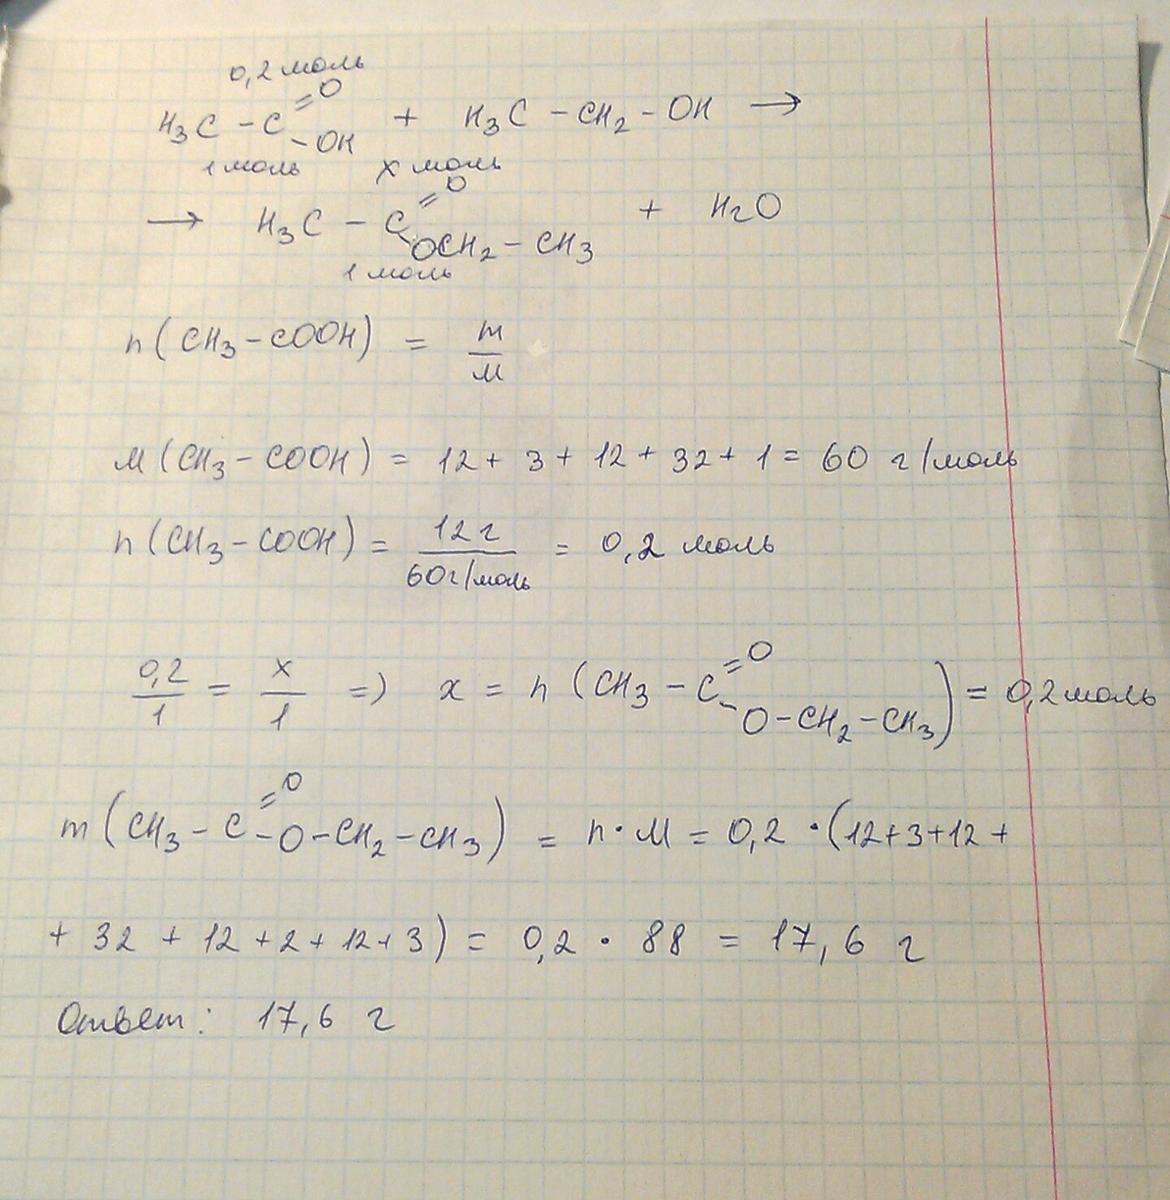 0,2 моль
H₃C – C =O –OH + H₃C – CH₂ – OH →
1 моль x моль
→ H₃C – C =O OCH₂ – CH₃ + H₂O
1 моль
n (CH₃ – COOH) = m/M
M (CH₃ – COOH) = 12 + 3 + 12 + 32 + 1 = 60 г/моль
n (CH₃ – COOH) = 12 г / 60 г/моль = 0,2 моль
0,2/1 = x/1 => x = n (CH₃ – C =O –O – CH₂ – CH₃) = 0,2 моль
m (CH₃ – C =O –O – CH₂ – CH₃) = n · M = 0,2 · (12+3+12 +
+ 32 + 12 + 2 + 12 + 3) = 0,2 · 88 = 17,6 г
Ответ: 17,6 г